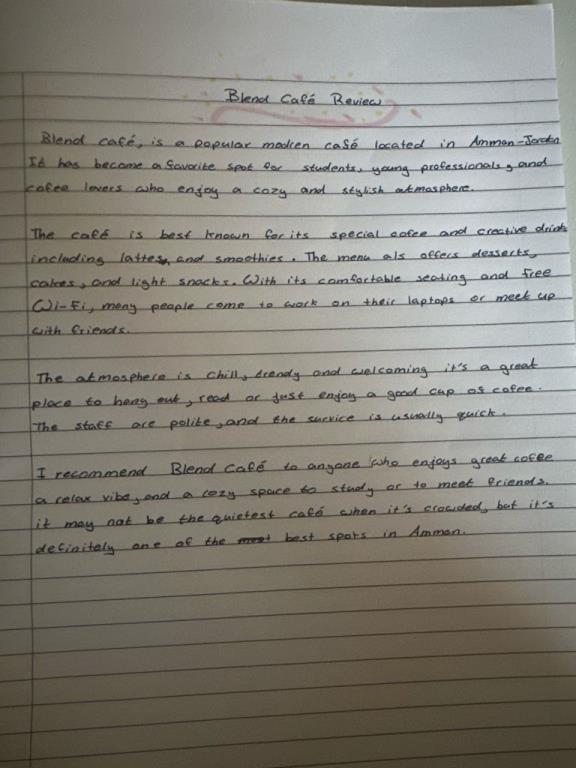 Blend Café Review
Blend café, is a popular madren café located in Amman-Jordan
It has become a favorite spot for students, young professionals, and
cofee lovers who enjoy a cozy and stylish atmosphere.
The café is best known for its special cofee and creative drinks
including lattes, and smoothies. The menu als offers desserts,
cakes, and light snacks. With its comfortable seating and free
Wi-Fi, many people come to work on their laptops or meet up
with friends.
The atmosphere is chill, trendy and welcoming it's a great
place to hang out, read or just enjoy a good cup of cofee.
The staff are polite, and the survice is usually quick.
I recommend Blend Café to anyone who enjoys great cofee
a relax vibe, and a cozy space to study or to meet friends.
it may not be the quietest café when it's crowded, but it's
definitely one of the most best spots in Amman.